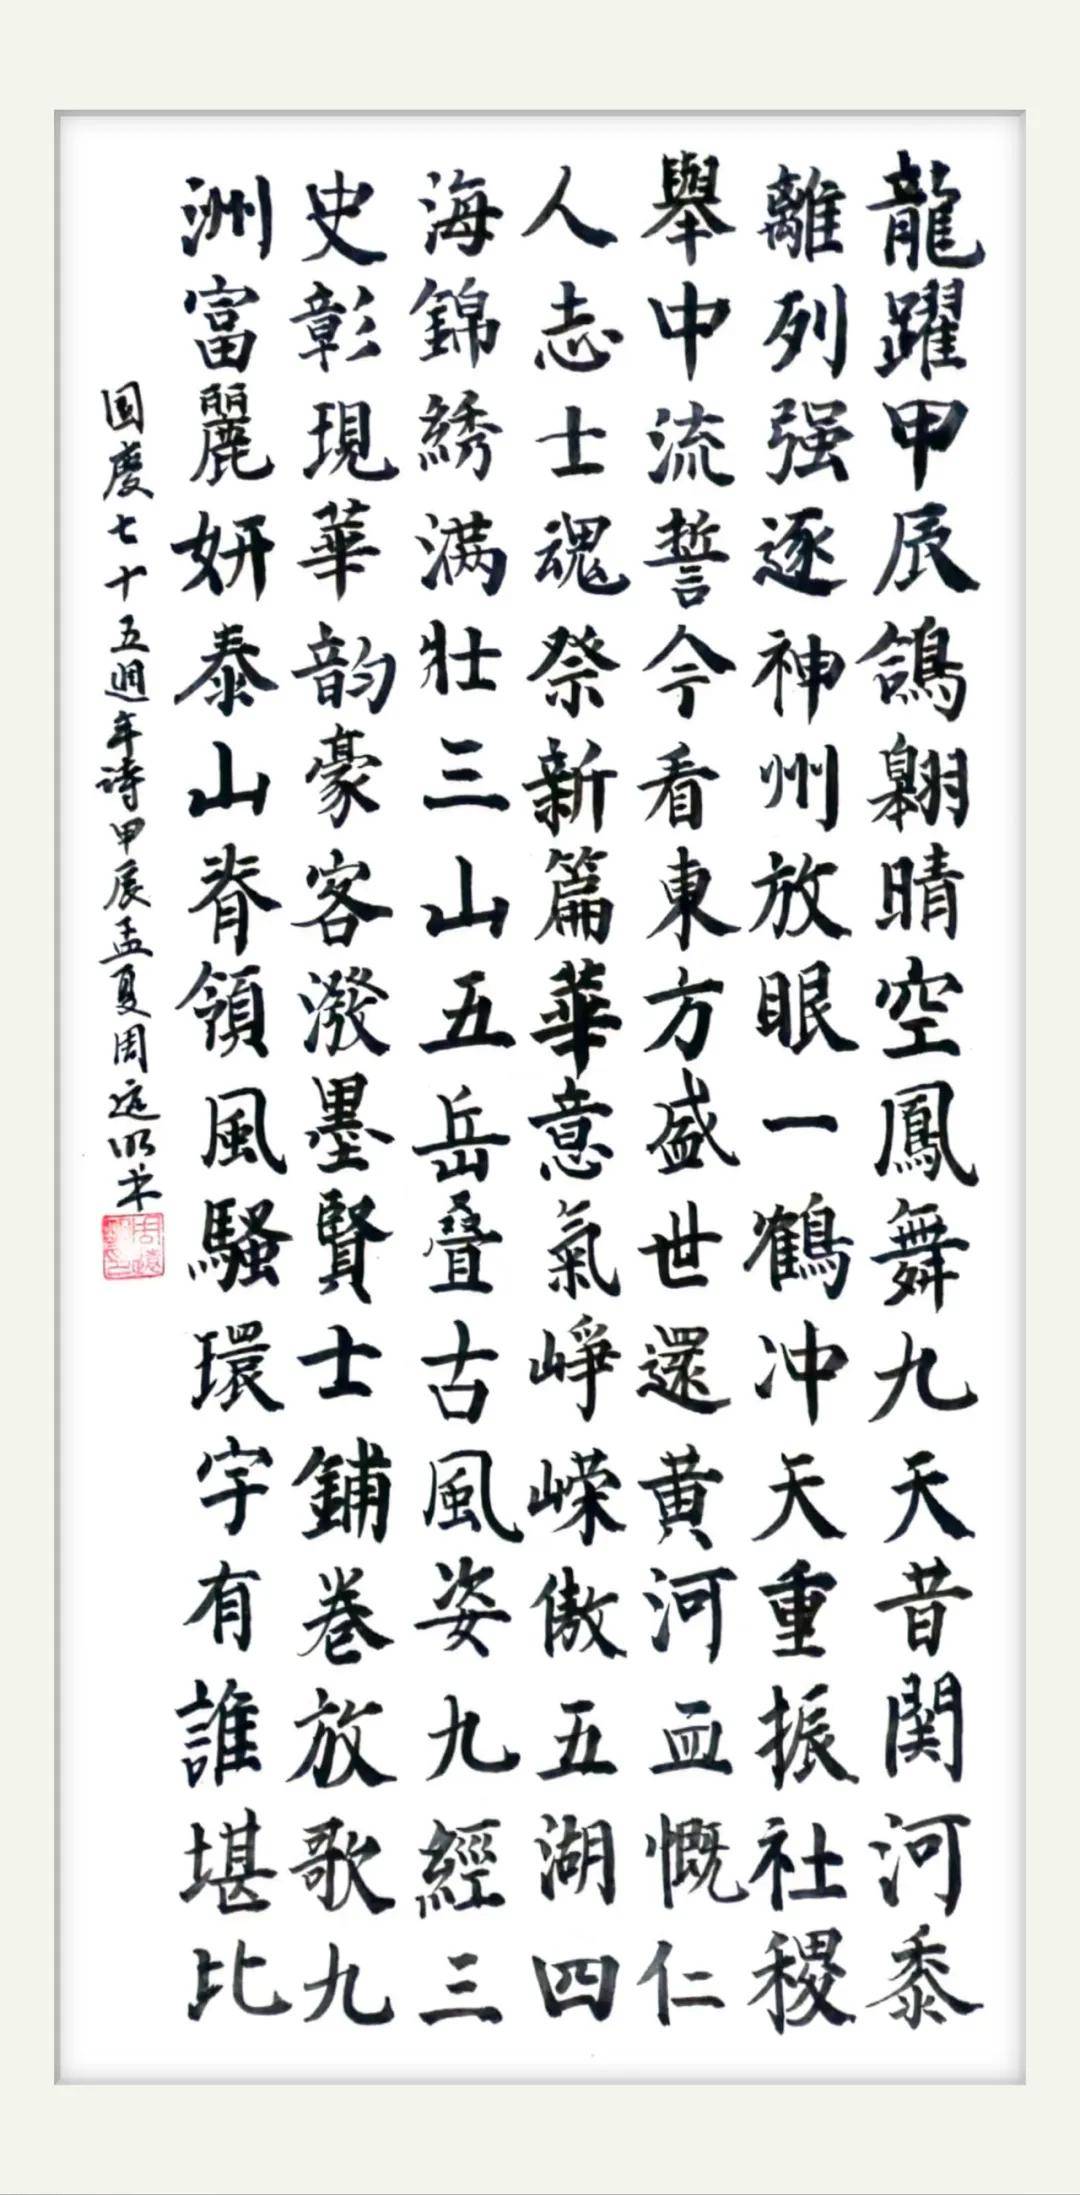 龍躍甲辰鴿翱晴空鳳舞九天昔関河黍
離列强逐神州放眼一鶴冲天重振社稷
舉中流誓今看東方盛世還黄河血慨仁
人志士魂祭新篇華意氣崢嶸傲五湖四
海錦綉满壯三山五岳叠古風姿九經三
史彰現華韵豪客潑墨賢士鋪卷放歌九
洲富麗妍泰山脊領風騷環宇有誰堪比
国慶七十五週年詩甲辰孟夏周遠明书